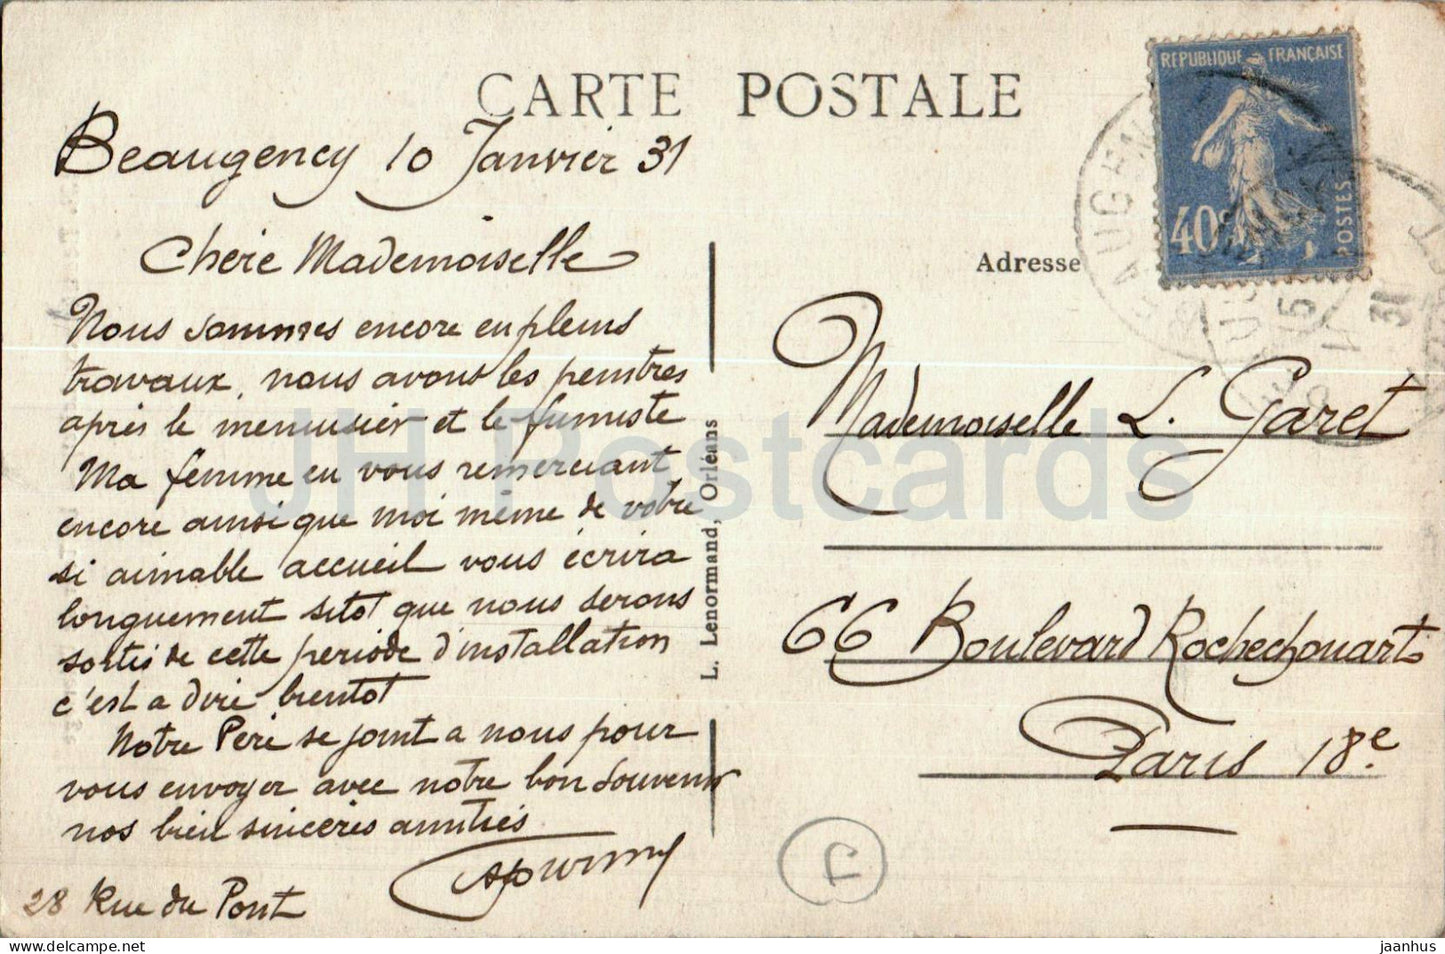 CARTE POSTALE
Beaugency 10 Janvier 31
Chère Mademoiselle
Nous sommes encore en pleins
travaux, nous avons les peintres
après le menuisier et le fumiste
Ma femme en vous remerciant
encore ainsi que moi même de votre
si aimable accueil vous écrira
longuement sitot que nous serons
sortis de cette periode d'installation
c'est a dire bientot
Notre Père se joint a nous pour
vous envoyer avec notre bon souvenir
nos bien sincères amitiés
28 Rue du Pont
L. Lenormand, Orléans
REPUBLIQUE FRANÇAISE
40c
POSTES
BEAUGENCY
31
Adresse
Mademoiselle L. Garet
66 Boulevard Rochechouart
Paris 18.e
JH Postcards
jaanhus